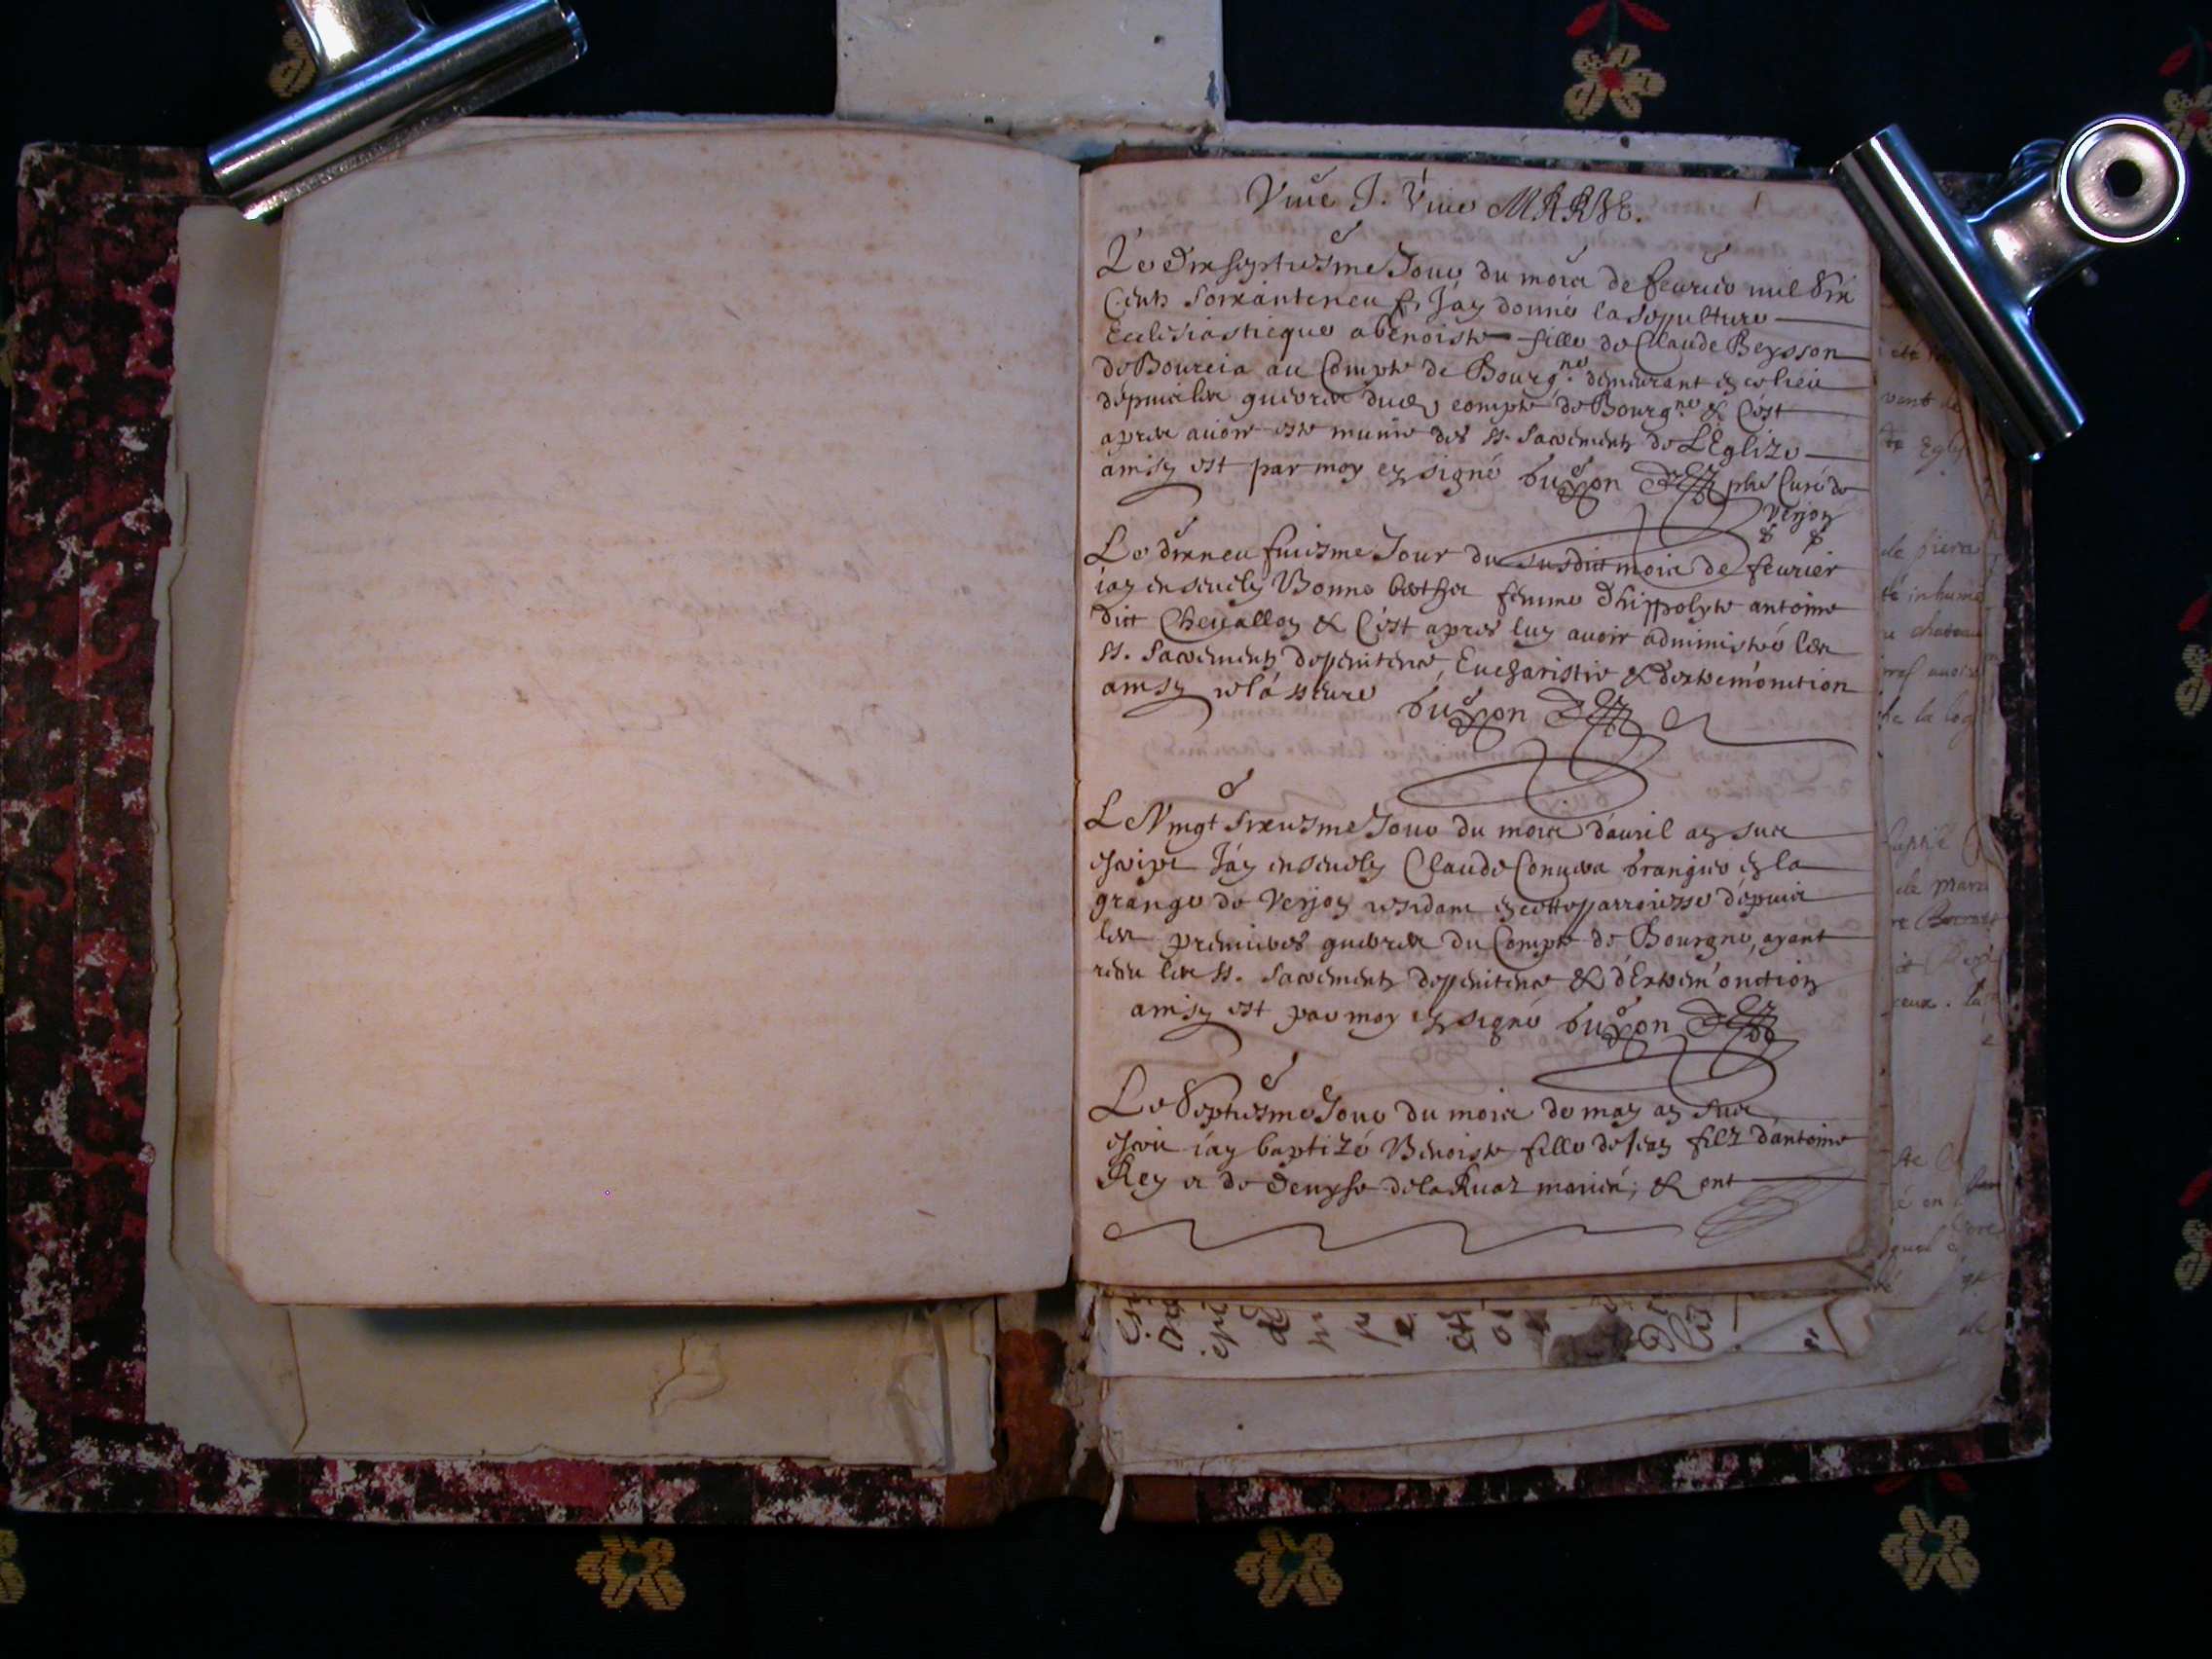 Viue J. Viue MARIE.
Le dixseptiesme Jour du mois de feurier mil Six
Centz soixanteneuf, Jay donné la sepulture
Ecclesiasticque a benoiste fille de Claude Beysson
de Bourcia au Compte de Bourg.ne demeurant en ce lieu
dépuis les guerres du compté de Bourg.ne & C'est
apres auoir esté munie des SS. Sacrements de L'Eglize
ainsy est par moy en signé buxon pbre Curé de
Verjon
Le dixneufuiesme Jour du susdict mois de feurier
iay enseuely Bonne femme d'hippolyte antoine
dict Cheuallon & C'est apres luy auoir administré les
SS. Sacrements de penitence, Eucharistie & d'extremónction
ainsy je l'ásseure buxon
Le Vingt sixiesme Jour du mois dauril an sus
escript Jáy enseuely Claude granger en la
grange de Verjon residant en cette parroisse dépuis
les premieres guerres du Compté de Bourgne, ayant
receu les SS. Sacrements de penitence & d'Extrem'onction
ainsy est par moy en signé buxon
Le Septiesme Jour du mois de may an sus
escri iay baptizé Benoiste fille de Jean filz d'antoine
Rey et de Denyse de la Ruaz mariés; & ont